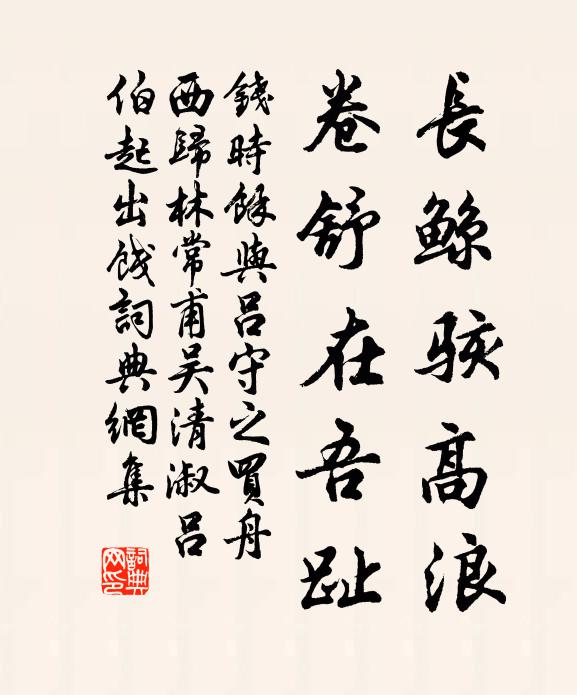 長鯨駭高浪
卷舒在吾趾
錢時餘與呂守之買舟
西歸林常甫吴清淑呂
伯起出餞詞典網集
詞典
网印